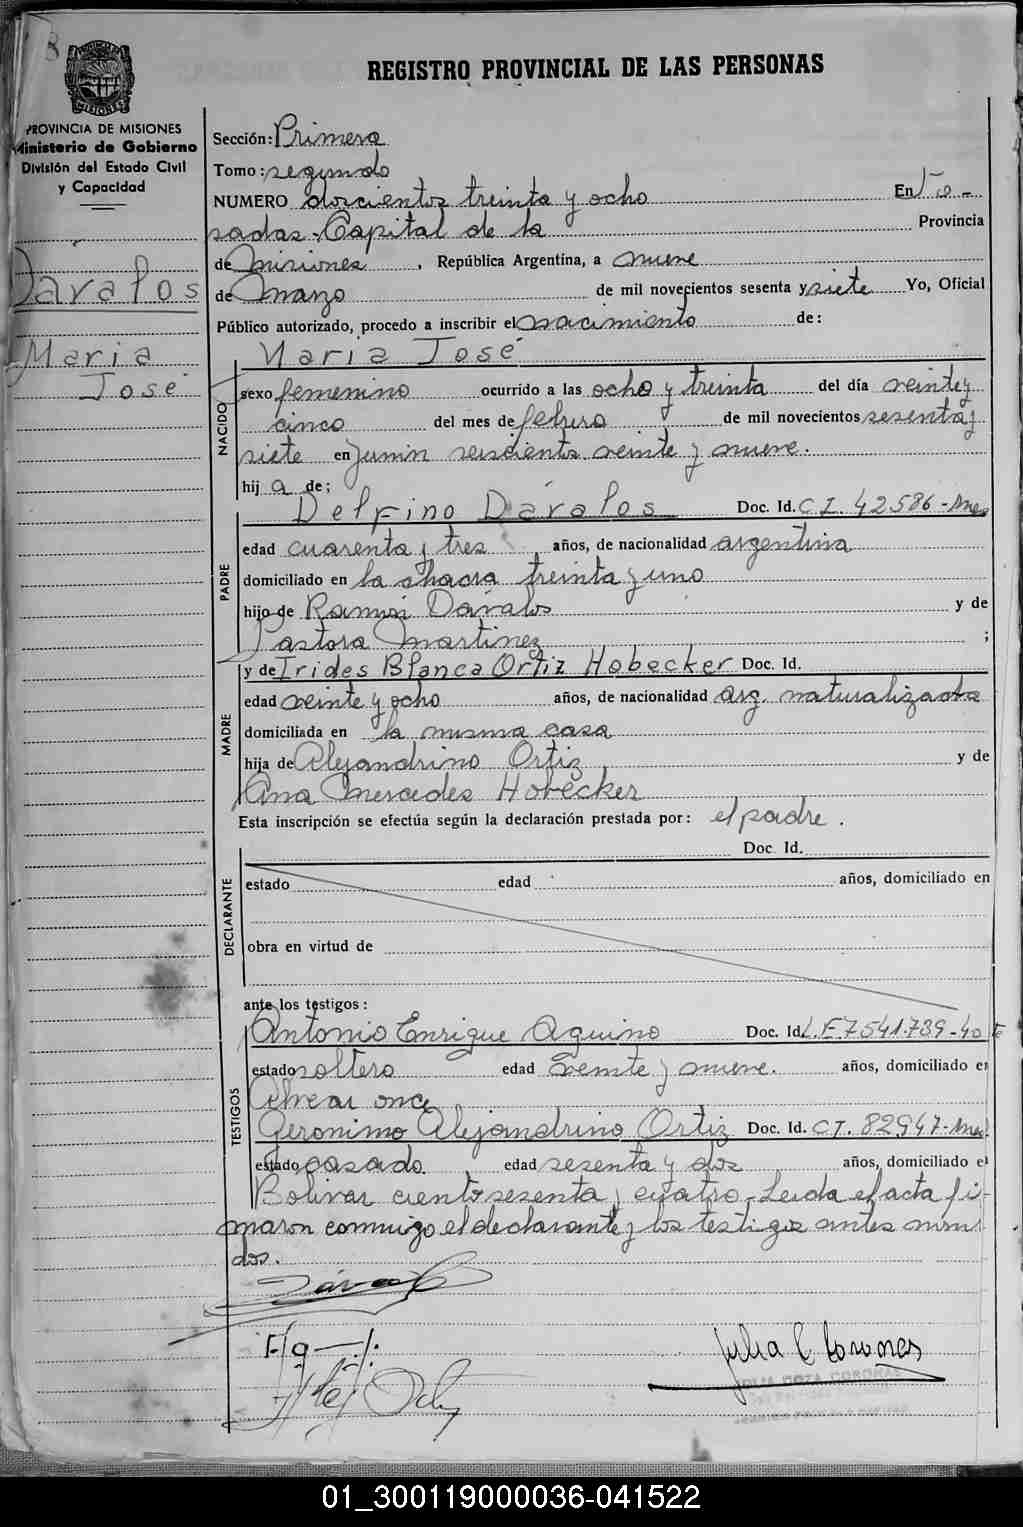 REGISTRO PROVINCIAL DE LAS PERSONAS
MISIONES
PROVINCIA DE MISIONES
Ministerio de Gobierno
División del Estado Civil
y Capacidad
Dávalos
María
José
Sección: Primera
Tomo: segundo
NUMERO doscientos treinta y ocho En Po-
sadas, Capital de la Provincia
de Misiones, República Argentina, a nueve
de Marzo de mil novecientos sesenta y siete Yo, Oficial
Público autorizado, procedo a inscribir el nacimiento de:
NACIDO
María José
sexo femenino ocurrido a las ocho y treinta del día veinte y
cinco del mes de febrero de mil novecientos sesenta y
siete en Junin seiscientos veinte y nueve.
hija de;
PADRE
Delfino Dávalos Doc. Id. C.I. 42.586-Mnes
edad cuarenta y tres años, de nacionalidad argentina
domiciliado en la chacra treinta y uno
hijo de Ramón Dávalos y de
Pastora Martinez ;
MADRE
y de Irides Blanca Ortiz Hobecker Doc. Id.
edad veinte y ocho años, de nacionalidad arg. naturalizada
domiciliada en la misma casa
hija de Alejandrino Ortiz y de
Ana Mercedes Hobecker
Esta inscripción se efectúa según la declaración prestada por: el padre.
DECLARANTE
Doc. Id.
estado edad años, domiciliado en
obra en virtud de
ante los testigos:
TESTIGOS
Antonio Enrique Aquino Doc. Id. L.E. 7.541.739-40
estado soltero edad veinte y nueve. años, domiciliado en
Alvear once
Geronimo Alejandrino Ortiz Doc. Id. C.I. 82.947-Mnes
estado casado edad sesenta y dos años, domiciliado en
Bolivar ciento sesenta y cuatro-Leida el acta fir-
maron conmigo el declarante y los testigos antes nomina
dos.
Julia C Coronas
01_300119000036-041522